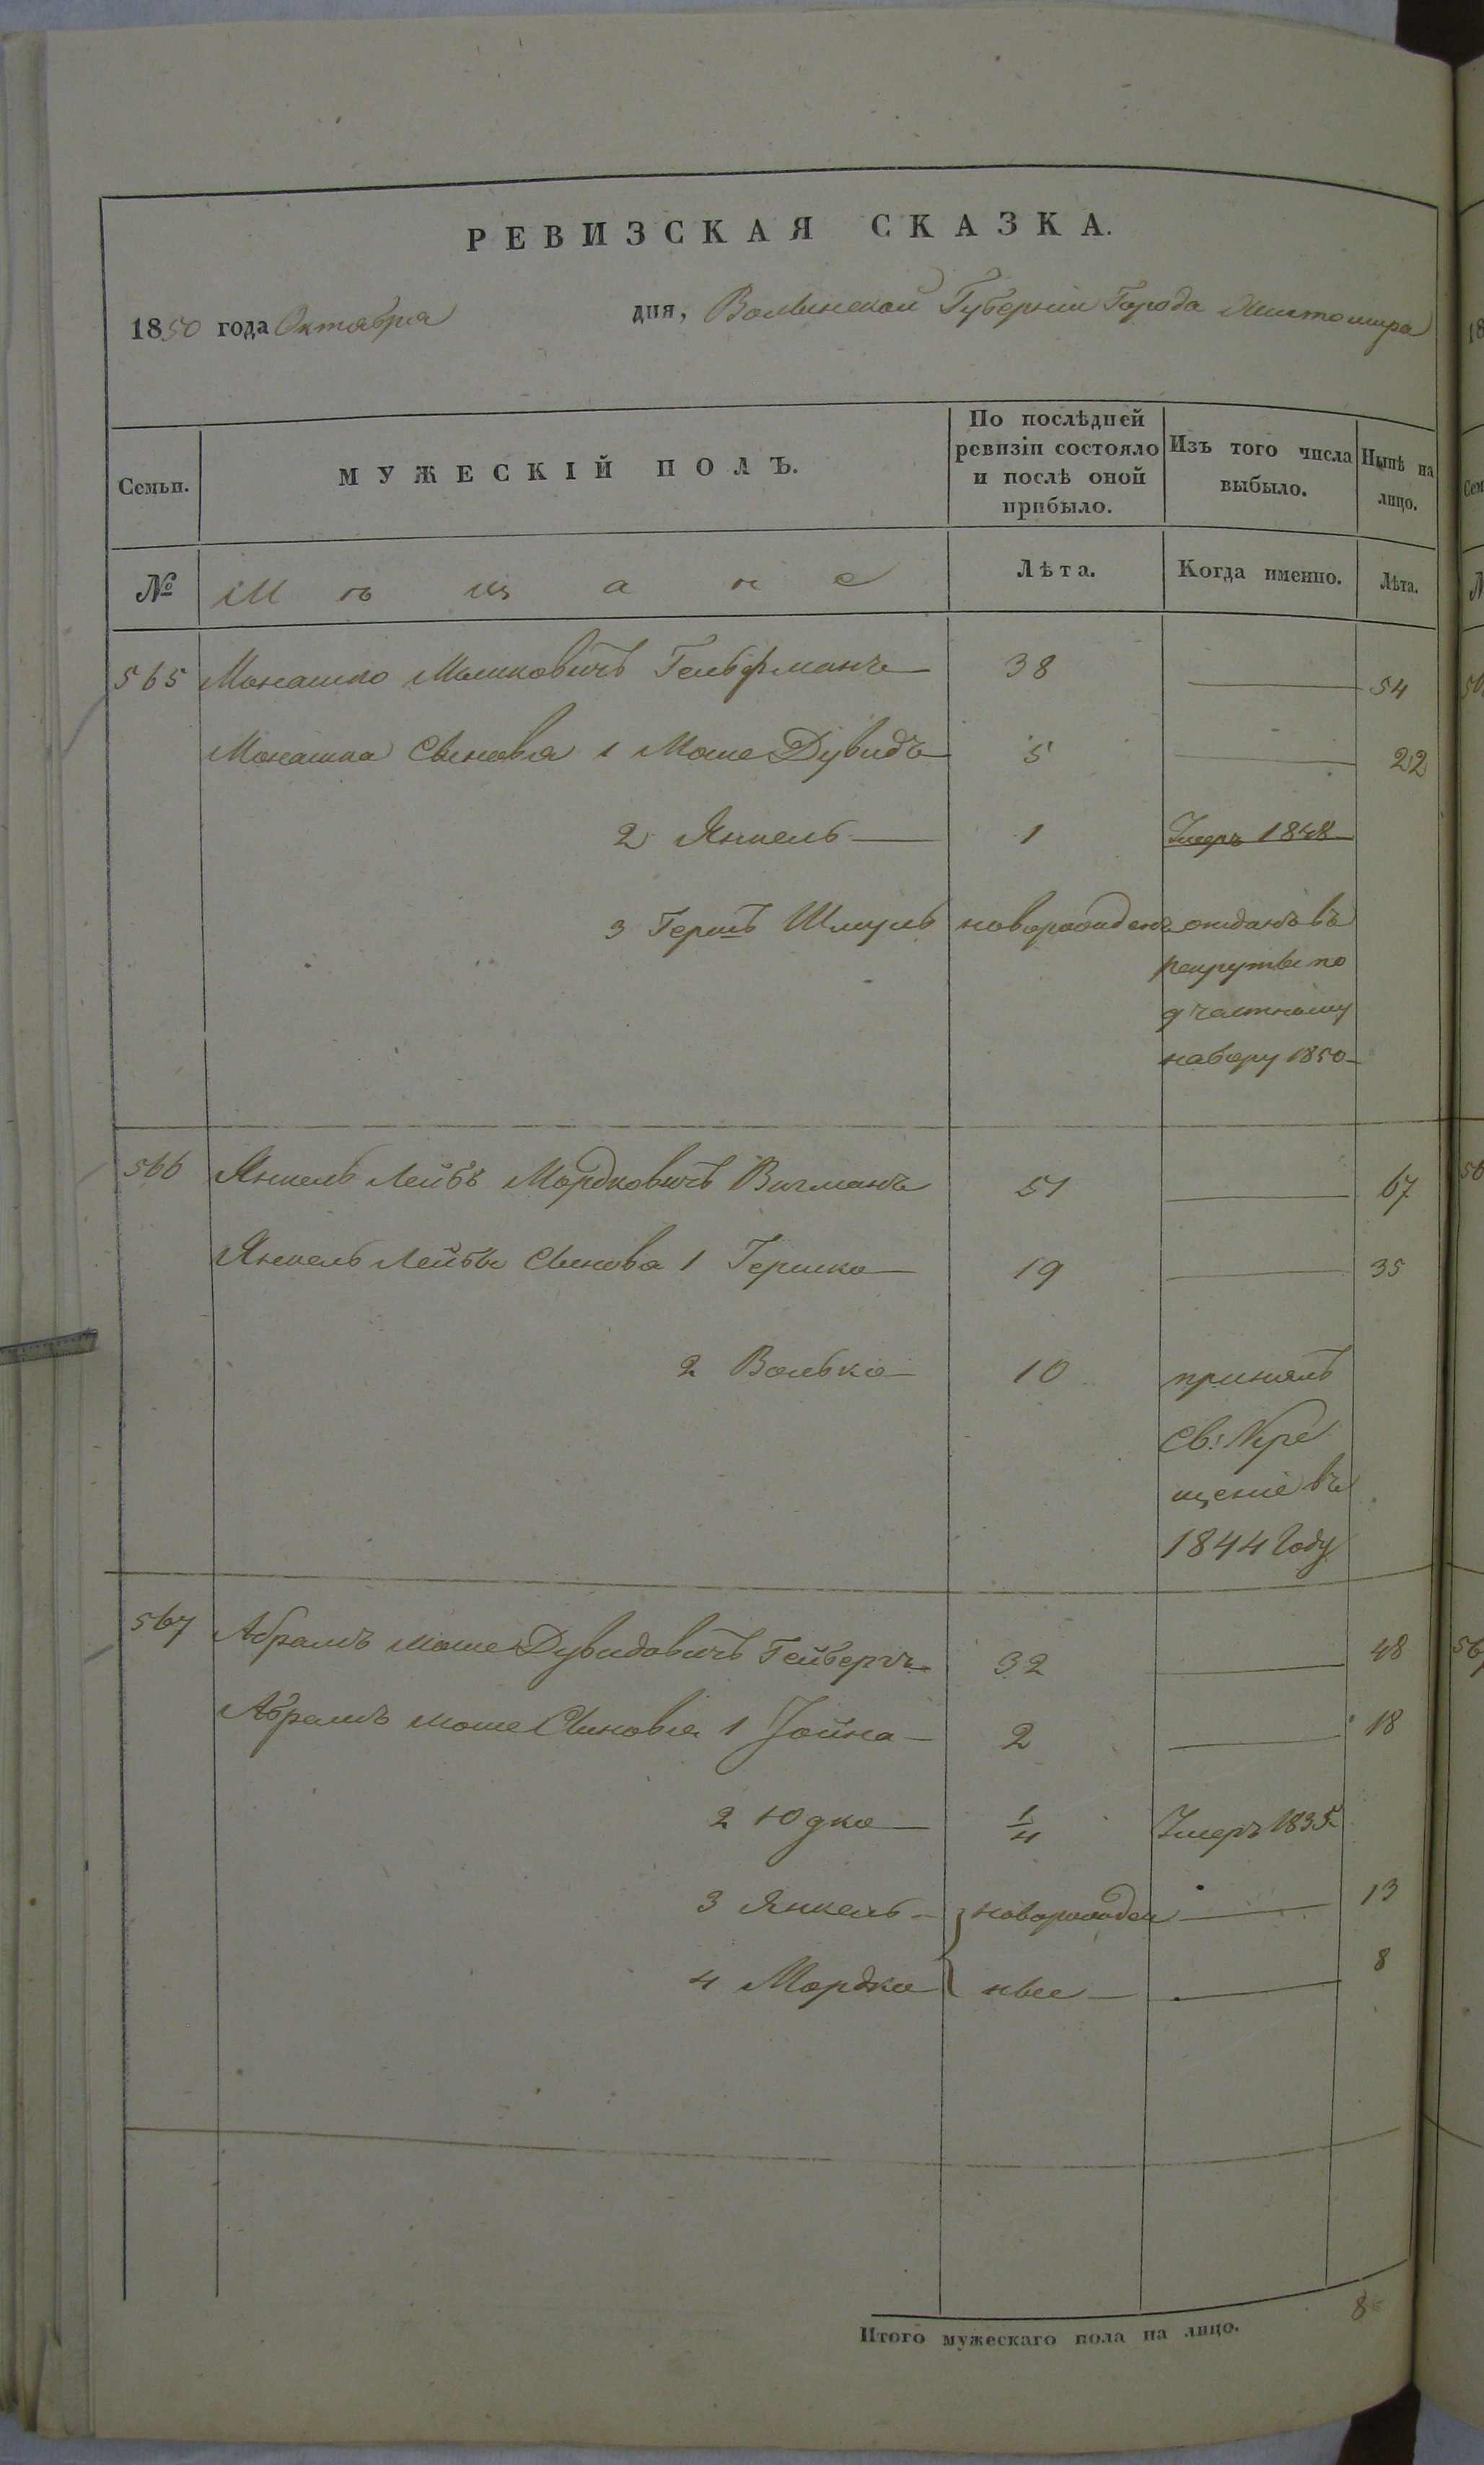 РЕВИЗСКАЯ СКАЗКА.
1850 года Октября дня, Волынской Губернии Города Житомира
Семьи. МУЖЕСКІЙ ПОЛЪ. По послѣдней ревизіи состояло и послѣ оной прибыло. Изъ того числа выбыло. Нынѣ на лицо.
№ Мѣщане Лѣта. Когда именно. Лѣта.
565 Монашко Мошковичъ Гельфманъ 38 — 54
Монашка Сыновья 1 Моше Дувидъ 5 — 22
2 Янкель — 1 Умеръ 1848
3 Гершъ Шмуль новорожденъ отданъ въ
рекруты по
частному
набору 1850
566 Янкель Лейбъ Мордковичъ Вигманъ 51 — 67
Янкель Лейбы Сынова 1 Гершко 19 — 35
2 Волько 10 принялъ
Св: Кре
щеніе въ
1844 Году
567 Абрамъ Моше Дувидовичъ Гейбергъ 32 — 48
Абрамъ Моше Сыновья 1 Іойна — 2 — 18
2 Юдко — 1/4 Умеръ 1835
3 Янкель — новорожден — 13
4 Мордко ные — 8
Итого мужескаго пола на лицо. 8